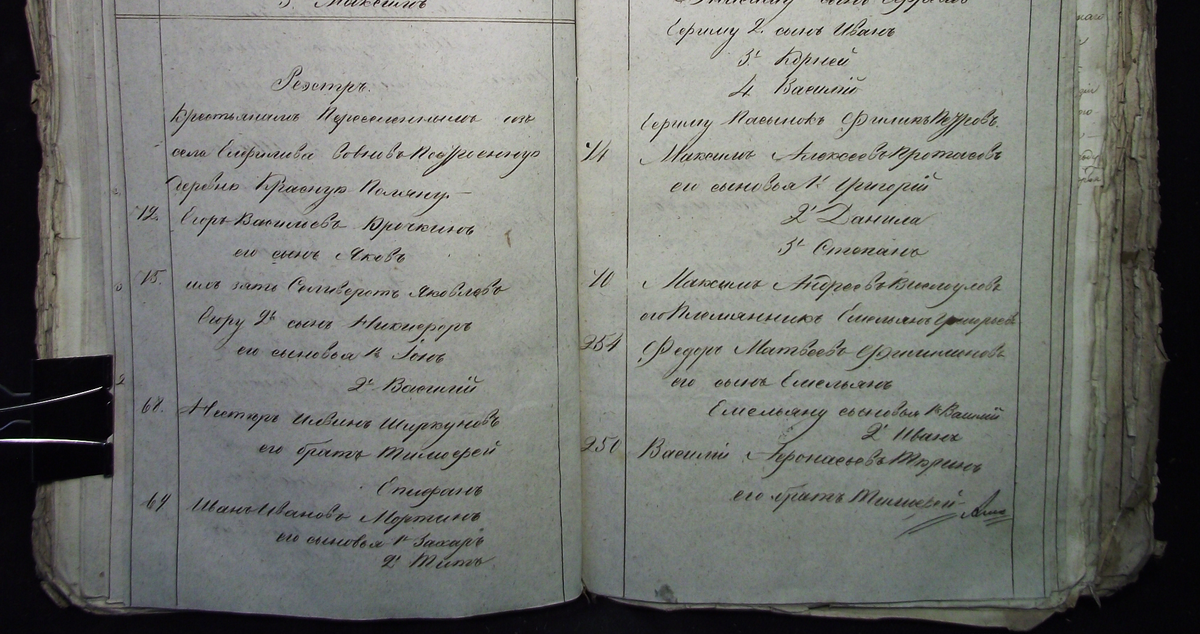 3. Максимъ
Реэстръ.
Крестьянамъ Переселеннымъ изъ
села вовновь
деревню Красную Поляну.
12. Егоръ Васильевъ Крючкинъ
его сынъ Яковъ
15. ихъ зять Яковлевъ
Егору 2й сынъ Никифоръ
его сыновья 1й Іонъ
2й Василій
61. Несторъ Ширкуновъ
его братъ Тимофей
Епифанъ
64 Иванъ Ивановъ Мортинъ
его сыновья 1й Захаръ
2й Титъ
сынъ
2. сынъ Иванъ
3й Корней
4. Василій
Пасынокъ Филипъ
14 Максимъ Алексеевъ Протасовъ
его сыновья 1й Григорій
2й Данила
3й Степанъ
10 Максимъ Андреевъ
его Племянникъ Емельянъ Григорьевъ
254 Федоръ Матвеевъ
его сынъ Емельянъ
Емельяну сыновья 1й Василій
2й Иванъ
250 Василій Афонасьевъ Тюринъ
его братъ